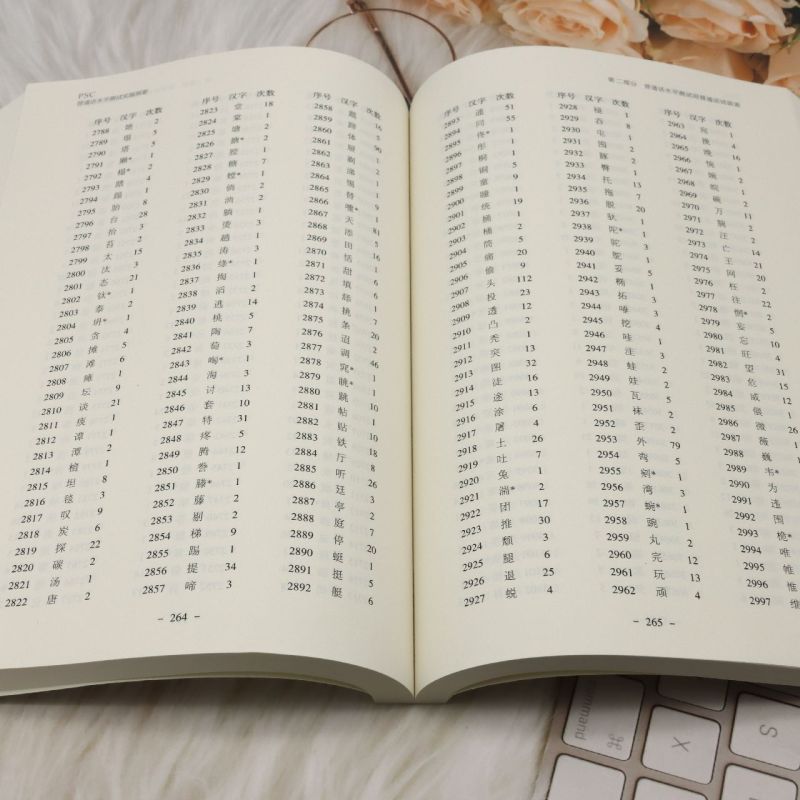 PSC
普通话水平测试实施纲要
序号 汉字 次数
2788 她 2
2789 塌 5
2790 塔 5
2791 獭* 1
2792 榻* 2
2793 踏 4
2794 蹋 1
2795 胎 8
2796 台 28
2797 抬 3
2798 苔 2
2799 太 15
2800 汰 3
2801 态 21
2802 钛* 1
2803 泰 2
2804 坍* 1
2805 贪 4
2806 摊 5
2807 滩 6
2808 瘫 1
2809 坛 9
2810 谈 21
2811 痰 1
2812 谭 1
2813 潭 2
2814 檀 1
2815 坦 8
2816 毯 3
2817 叹 9
2818 炭 6
2819 探 22
2820 碳 2
2821 汤 1
2822 唐 2
序号 汉字 次数
2823 堂 18
2824 棠 1
2825 塘 2
2826 搪* 2
2827 膛 1
2828 糖 7
2829 螳* 1
2830 倘 2
2831 淌 2
2832 躺 1
2833 烫 3
2834 趟 1
2835 涛 3
2836 绦* 1
2837 掏 1
2838 滔 2
2839 逃 14
2840 桃 5
2841 陶 7
2842 萄 3
2843 啕* 1
2844 淘 3
2845 讨 13
2846 套 10
2847 特 31
2848 疼 5
2849 腾 12
2850 誊 1
2851 滕* 1
2852 藤 2
2853 剔 2
2854 梯 9
2855 踢 1
2856 提 34
2857 啼 3
序号 汉字 次数
2858 题 16
2859 蹄 3
2860 体
2861 屉 1
2862 剃 2
2863 涕 1
2864 惕 1
2865 替 9
2866 嚏* 1
2867 天 81
2868 添 5
2869 田 16
2870 恬 1
2871 甜 6
2872 填 6
2873 舔 1
2874 挑 7
2875 条 20
2876 迢 2
2877 调 46
2878 窕* 1
2879 眺* 1
2880 跳 10
2881 帖 1
2882 贴 10
2883 铁 18
2884 厅 8
2885 听 26
2886 廷 3
2887 亭 2
2888 庭 7
2889 停 20
2890 蜓 1
2891 挺 5
2892 艇 6
- 264 -
第二部分 普通话水平测试用普通话词语表
序号 汉字 次数
2893 通 51
2894 同 55
2895 佟* 1
2896 彤 1
2897 桐 1
2898 铜 5
2899 童 9
2900 瞳 1
2901 统 19
2902 捅 1
2903 桶 2
2904 筒 5
2905 痛 20
2906 偷 9
2907 头 112
2908 投 23
2909 透 12
2910 凸 2
2911 秃 1
2912 突 13
2913 图 32
2914 徒 16
2915 途 13
2916 涂 6
2917 屠 4
2918 土 26
2919 吐 7
2920 兔 1
2921 湍* 2
2922 团 17
2923 推 30
2924 颓 3
2925 腿 6
2926 退 25
2927 蜕 4
序号 汉字 次数
2928 褪 1
2929 吞 8
2930 屯 1
2931 囤 2
2932 豚 2
2933 臀 1
2934 托 13
2935 拖 7
2936 脱 20
2937 驮 1
2938 陀* 1
2939 驼 3
2940 鸵 1
2941 妥 5
2942 椭 1
2943 拓 3
2944 唾 3
2945 挖 4
2946 哇 1
2947 洼 3
2948 蛙 2
2949 娃 2
2950 瓦 5
2951 袜 2
2952 歪 2
2953 外 79
2954 弯 5
2955 剜* 1
2956 湾 3
2957 蜿* 1
2958 豌 1
2959 丸 2
2960 完 12
2961 玩 13
2962 顽 4
序号 汉字 次数
2963 宛 1
2964 挽 4
2965 晚 16
2966 惋 1
2967 婉 2
2968 皖 1
2969 碗 2
2970 万 11
2971
2972 汪 2
2973 亡 14
2974 王 21
2975 网 20
2976 枉 2
2977 往 22
2978 惘* 2
2979 妄 5
2980 忘 10
2981 旺 4
2982 望 31
2983 危 15
2984 威 12
2985 偎 1
2986 微 26
2987 薇 1
2988 巍 2
2989 韦* 1
2990 为
2991 违
2992 围
2993 桅*
2994 唯
2995 帷
2996 惟
2997 维
- 265 -
command
⌘
X
S